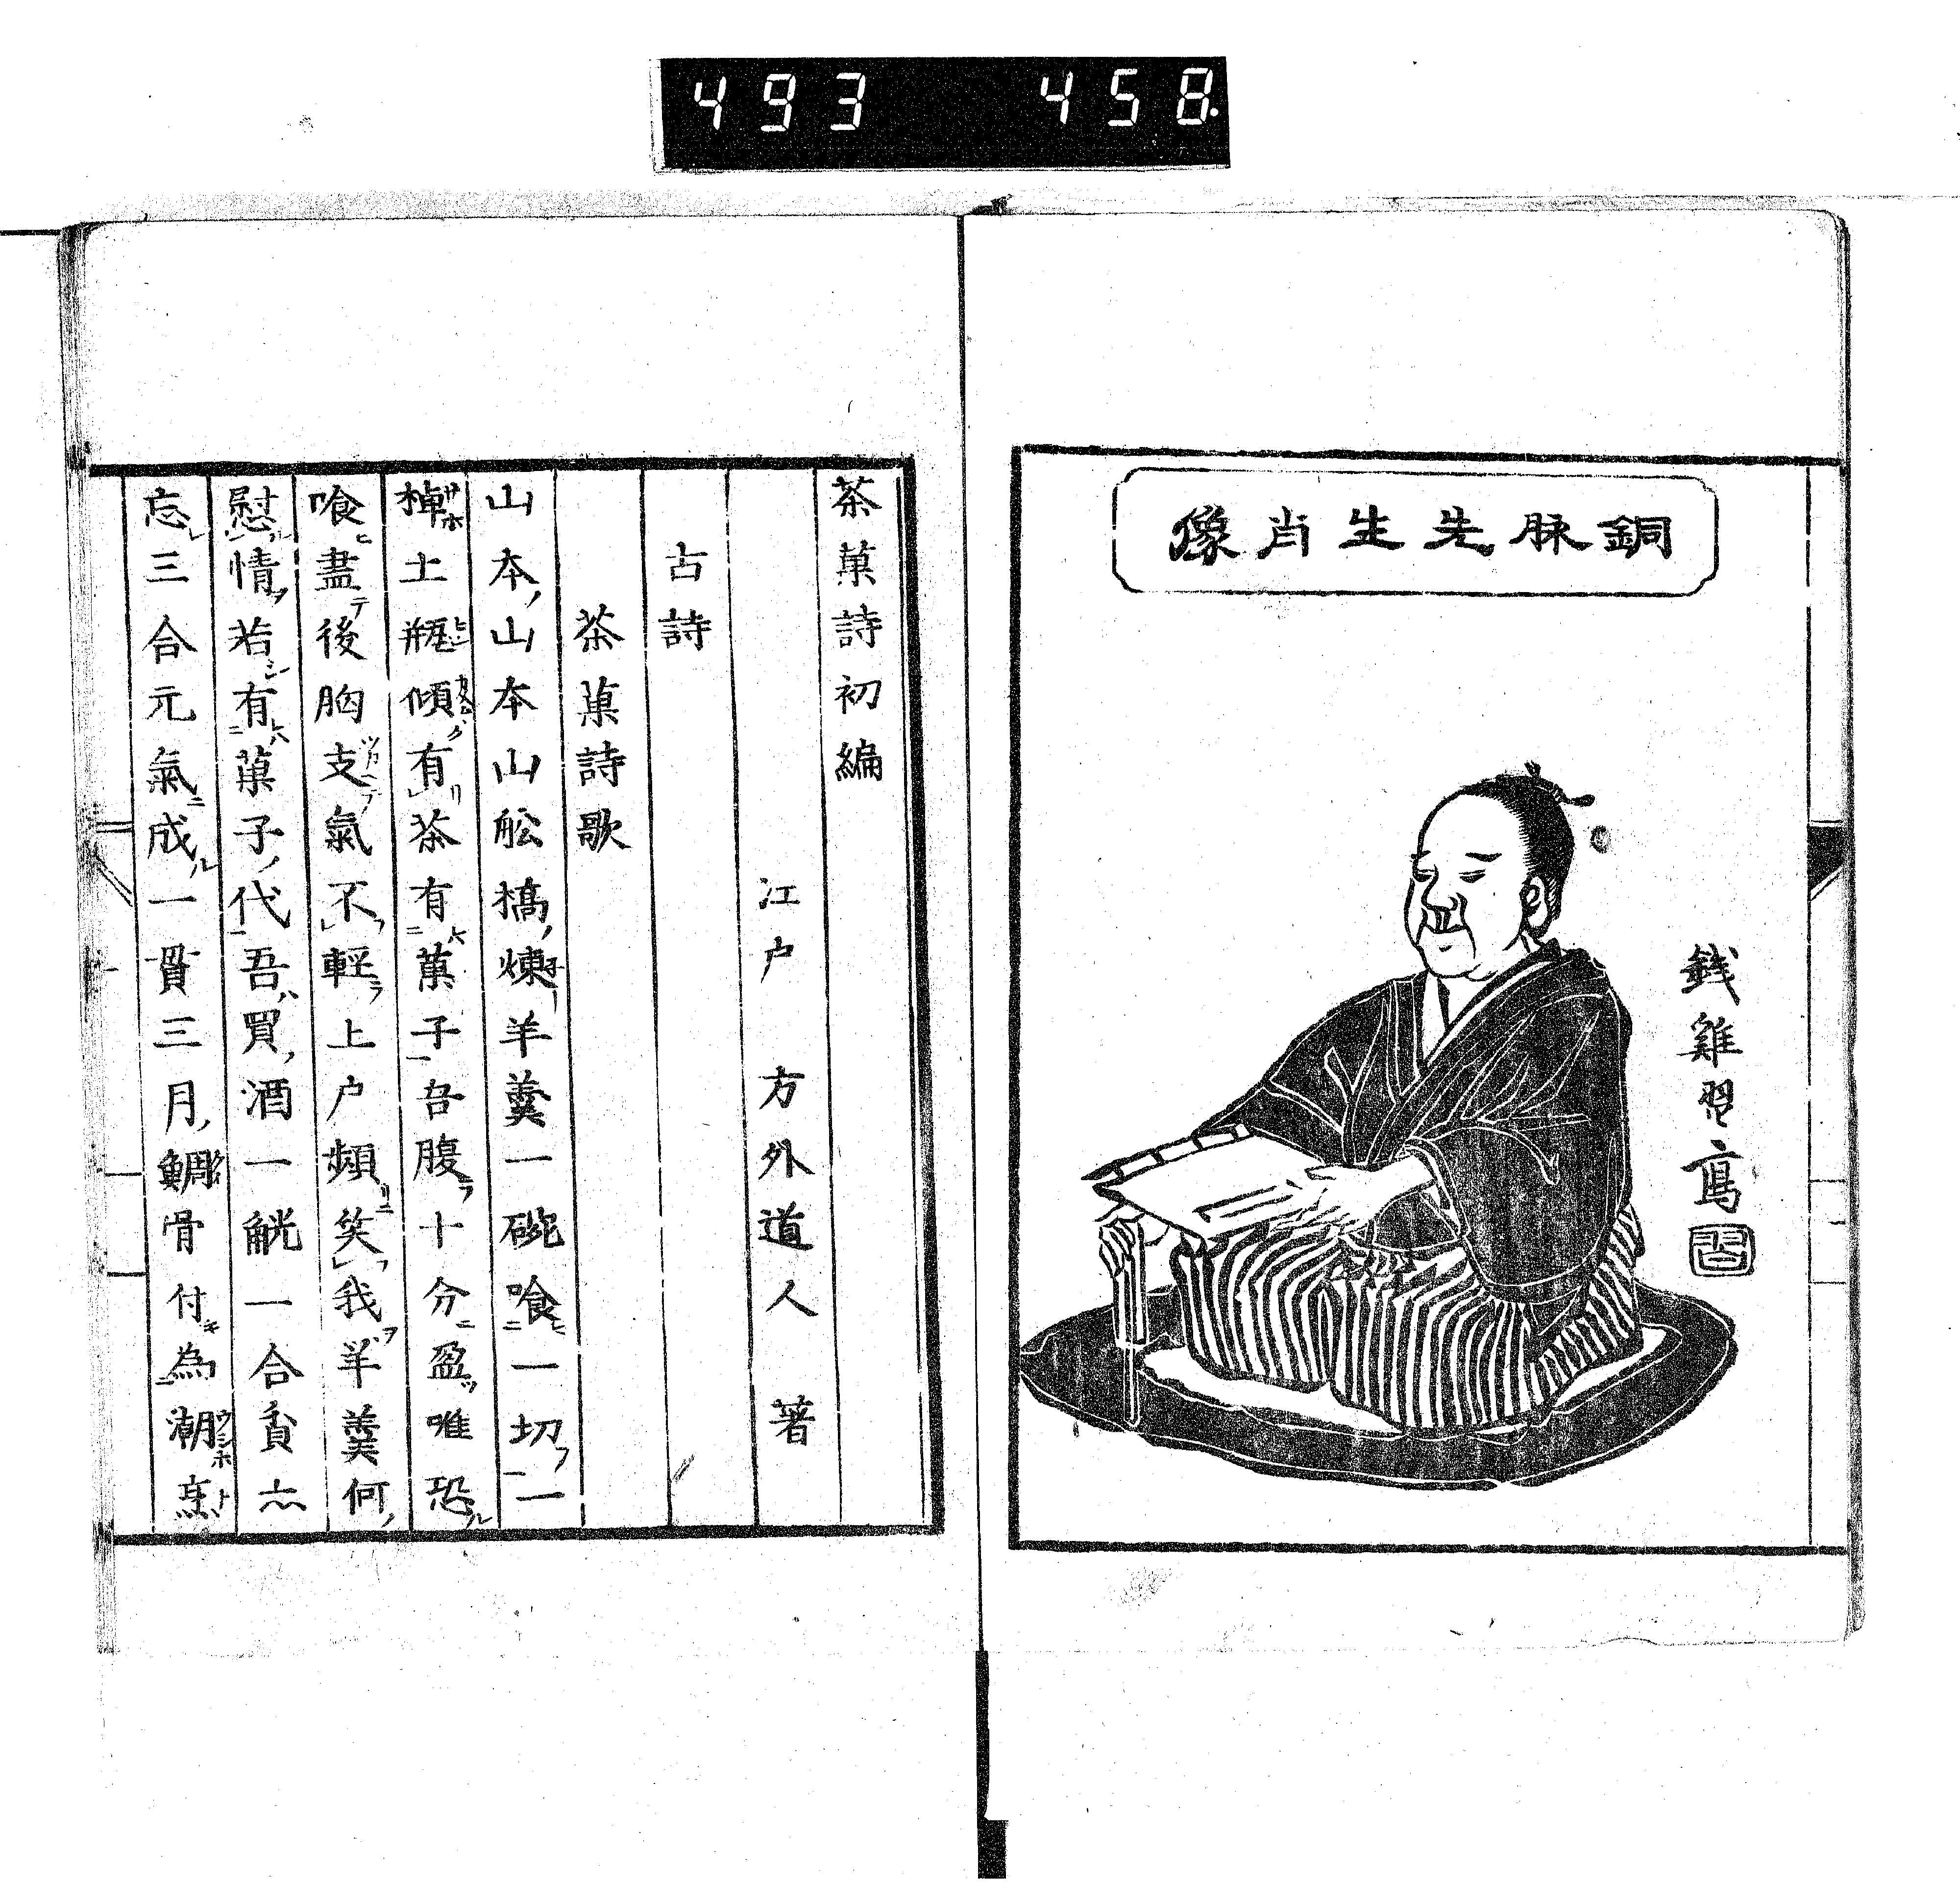 493 458.
銅脉先生肖像
錢雞習寫
茶菓詩初編
江戸 方外道人 著
古詩
茶菓詩歌
山本山本山舩橋煉羊羹一碗喰一切一
棹土瓶傾有茶有菓子吾腹十分盈唯恐
喰盡後胸支氣不輕上戸頻笑我羊羹何
慰情若有菓子代吾買酒一觥一合貧
忘三合元氣成一貫三月鯛骨付為潮烹